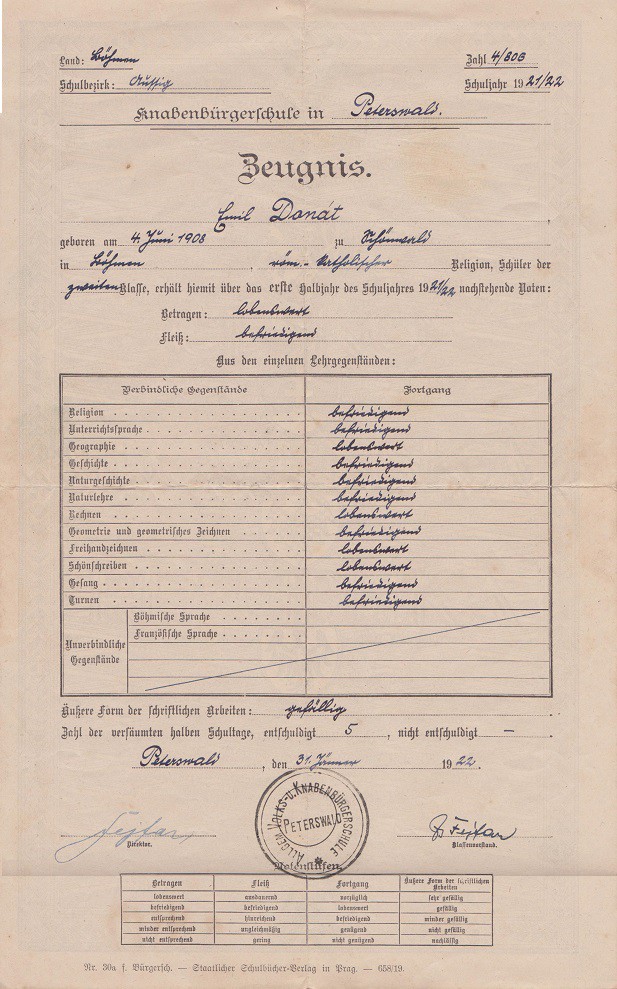 Land: Böhmen Zahl 4/606
Schulbezirk: Aussig Schuljahr 1921/22
Knabenbürgerschule in Peterswald.
Zeugnis.
Emil Donát
geboren am 4. Juni 1908 zu Schönwald
in Böhmen, röm.-katholischer Religion, Schüler der
zweiten Klasse, erhält hiemit über das erste Halbjahr des Schuljahres 1921/22 nachstehende Noten:
Betragen: lobenswert
Fleiß: befriedigend
Aus den einzelnen Lehrgegenständen:
Verbindliche Gegenstände Fortgang
Religion befriedigend
Unterrichtssprache befriedigend
Geographie lobenswert
Geschichte befriedigend
Naturgeschichte befriedigend
Naturlehre befriedigend
Rechnen lobenswert
Geometrie und geometrisches Zeichnen befriedigend
Freihandzeichnen lobenswert
Schönschreiben lobenswert
Gesang befriedigend
Turnen befriedigend
Unverbindliche Gegenstände
Böhmische Sprache
Französische Sprache
Äußere Form der schriftlichen Arbeiten: gefällig
Zahl der versäumten halben Schultage, entschuldigt 5, nicht entschuldigt —.
Peterswald, den 31. Jänner 1922.
ALLGEM. VOLKS- U. KNABENBÜRGERSCHULE
PETERSWALD
Fejfar
Direktor.
Fejfar
Klassenvorstand.
Notenstufen.
Betragen Fleiß Fortgang Äußere Form der schriftlichen Arbeiten
lobenswert ausdauernd vorzüglich sehr gefällig
befriedigend befriedigend lobenswert gefällig
entsprechend hinreichend befriedigend minder gefällig
minder entsprechend ungleichmäßig genügend nicht gefällig
nicht entsprechend gering nicht genügend nachlässig
Nr. 30a f. Bürgersch. — Staatlicher Schulbücher-Verlag in Prag. — 658/19.